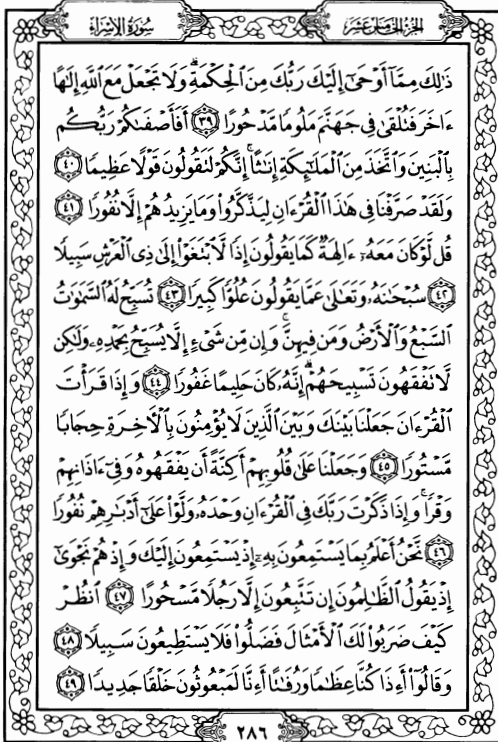 سُورَةُ الإِسْرَاءِ الجُزْءُ الخَامِسَ عَشَرَ
ذَٰلِكَ مِمَّآ أَوْحَىٰٓ إِلَيْكَ رَبُّكَ مِنَ ٱلْحِكْمَةِۗ وَلَا تَجْعَلْ مَعَ ٱللَّهِ إِلَٰهًا
ءَاخَرَ فَتُلْقَىٰ فِى جَهَنَّمَ مَلُومًا مَّدْحُورًا ٣٩ أَفَأَصْفَىٰكُمْ رَبُّكُم
بِٱلْبَنِينَ وَٱتَّخَذَ مِنَ ٱلْمَلَٰٓئِكَةِ إِنَٰثًاۚ إِنَّكُمْ لَتَقُولُونَ قَوْلًا عَظِيمًا ٤٠
وَلَقَدْ صَرَّفْنَا فِى هَٰذَا ٱلْقُرْءَانِ لِيَذَّكَّرُوا۟ وَمَا يَزِيدُهُمْ إِلَّا نُفُورًا ٤١
قُل لَّوْ كَانَ مَعَهُۥٓ ءَالِهَةٌ كَمَا يَقُولُونَ إِذًا لَّٱبْتَغَوْا۟ إِلَىٰ ذِى ٱلْعَرْشِ سَبِيلًا
٤٢ سُبْحَٰنَهُۥ وَتَعَٰلَىٰ عَمَّا يَقُولُونَ عُلُوًّا كَبِيرًا ٤٣ تُسَبِّحُ لَهُ ٱلسَّمَٰوَٰتُ
ٱلسَّبْعُ وَٱلْأَرْضُ وَمَن فِيهِنَّۚ وَإِن مِّن شَىْءٍ إِلَّا يُسَبِّحُ بِحَمْدِهِۦ وَلَٰكِن
لَّا تَفْقَهُونَ تَسْبِيحَهُمْۗ إِنَّهُۥ كَانَ حَلِيمًا غَفُورًا ٤٤ وَإِذَا قَرَأْتَ
ٱلْقُرْءَانَ جَعَلْنَا بَيْنَكَ وَبَيْنَ ٱلَّذِينَ لَا يُؤْمِنُونَ بِٱلْءَاخِرَةِ حِجَابًا
مَّسْتُورًا ٤٥ وَجَعَلْنَا عَلَىٰ قُلُوبِهِمْ أَكِنَّةً أَن يَفْقَهُوهُ وَفِىٓ ءَاذَانِهِمْ
وَقْرًاۚ وَإِذَا ذَكَرْتَ رَبَّكَ فِى ٱلْقُرْءَانِ وَحْدَهُۥ وَلَّوْا۟ عَلَىٰٓ أَدْبَٰرِهِمْ نُفُورًا
٤٦ نَّحْنُ أَعْلَمُ بِمَا يَسْتَمِعُونَ بِهِۦٓ إِذْ يَسْتَمِعُونَ إِلَيْكَ وَإِذْ هُمْ نَجْوَىٰٓ
إِذْ يَقُولُ ٱلظَّٰلِمُونَ إِن تَتَّبِعُونَ إِلَّا رَجُلًا مَّسْحُورًا ٤٧ ٱنظُرْ
كَيْفَ ضَرَبُوا۟ لَكَ ٱلْأَمْثَالَ فَضَلُّوا۟ فَلَا يَسْتَطِيعُونَ سَبِيلًا ٤٨
وَقَالُوٓا۟ أَءِذَا كُنَّا عِظَٰمًا وَرُفَٰتًا أَءِنَّا لَمَبْعُوثُونَ خَلْقًا جَدِيدًا ٤٩
٢٨٦